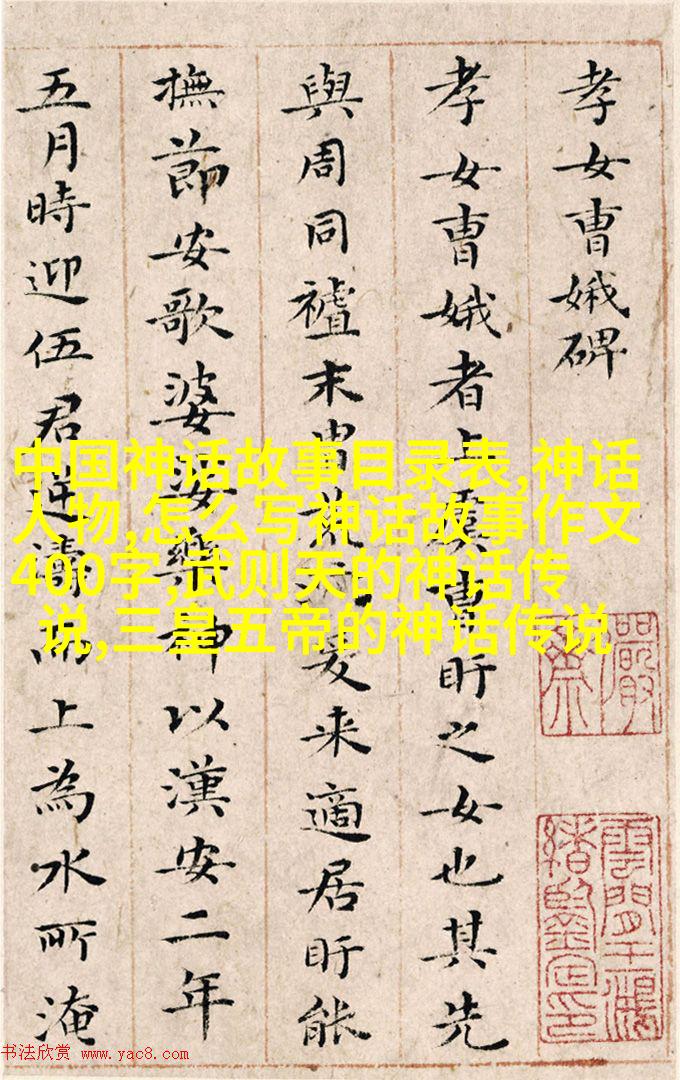 孝女曹娥碑
孝女曹娥者上虞曹盱之女也其先
與周同末胄荒沉爰来適居盱能
撫節安歌婆娑樂神以漢安二年
五月時迎伍君逆濤而上為水所淹
中国神话故事目录表,神话
人物,怎么写神话故事作文
400字,武则天的神话传
说,三皇五帝的神话传说
雲間王鴻
緒鑒定印
书法欣赏 www.yac8.com